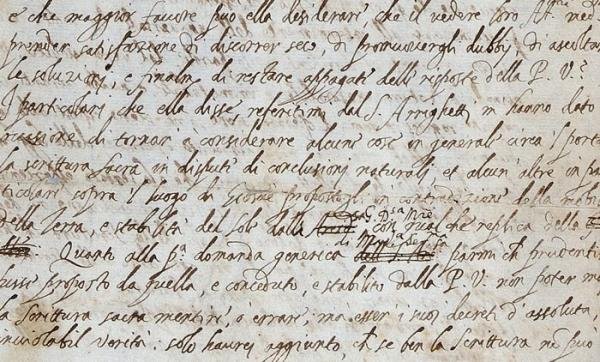 e che maggior favore puo ella desiderare, che il vedere loro Al.
prender satisfazione di discorrer seco, di promuovergli dubbi, di ascoltar
le soluzioni, e finalm. di restare appagate delle risposte della P. V.
I particolari che ella disse, referitimi dal S. Arrighetti m hanno dato
occasione di tornar a considerare alcune cose in generale circa l porta
la scrittura sacra in dispute di conclusioni naturali, et alcun altre in pa
ticolari sopra l luogo di Giosue propostoli in contradizione della mobi
della Terra, e stabilità del Sole dalla G. D.sa M.re con qual che replica della
Quanto alla p.a domanda generica di parmi ch prudentis
fusse proposto da quella, e conceduto, e stabilito dalla P. V. non poter ma
la scrittura sacra mentire, o errare, ma esser i suoi decreti d'assoluta,
inviolabil verità: solo haurei aggiunto, ch se ben la Scrittura no può